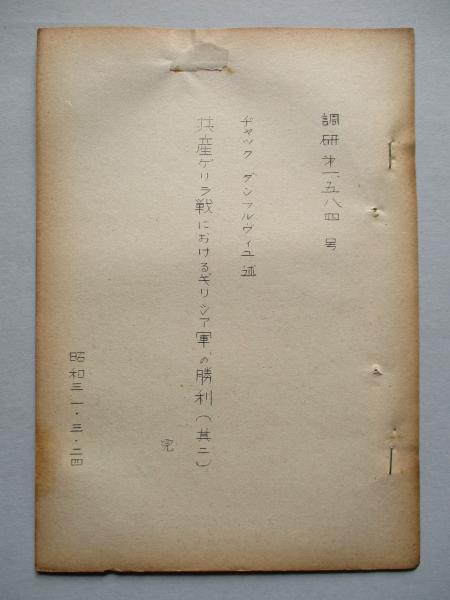 調研第一、五八四号
ヂャック ダンフルヴィユ述
共産ゲリラ戦におけるギリシア軍の勝利(其二)
完
昭和三一・三・二四